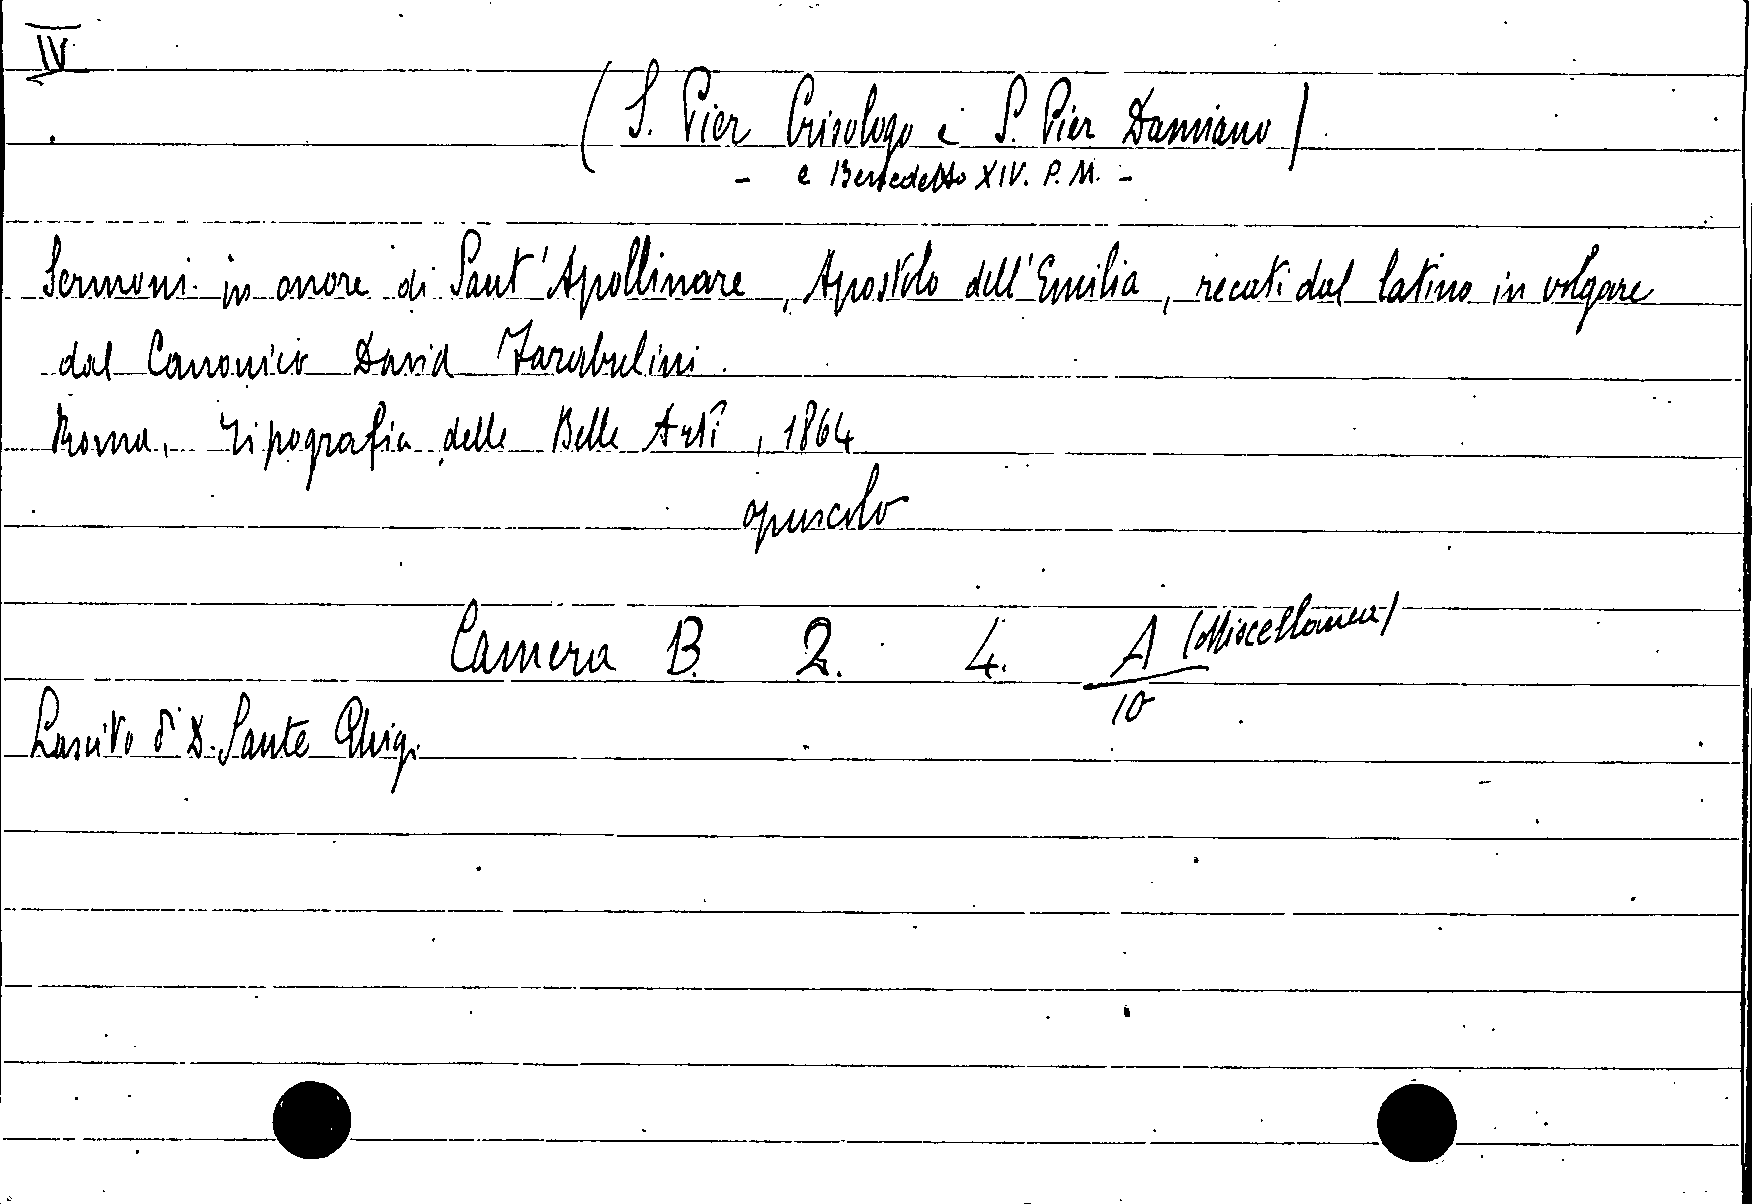 IV
(S. Pier Crisologo e S. Pier Damiano)
- e Benedetto XIV. P. M. -
Sermoni in onore di Sant'Apollinare, Apostolo dell'Emilia, recati dal latino in volgare
dal Canonico David Farabulini.
Roma, Tipografia delle Belle Arti, 1864
opuscolo
Camera B. 2. 4. A (Miscellanea)
10
Lascito di D. Sante Ghigi